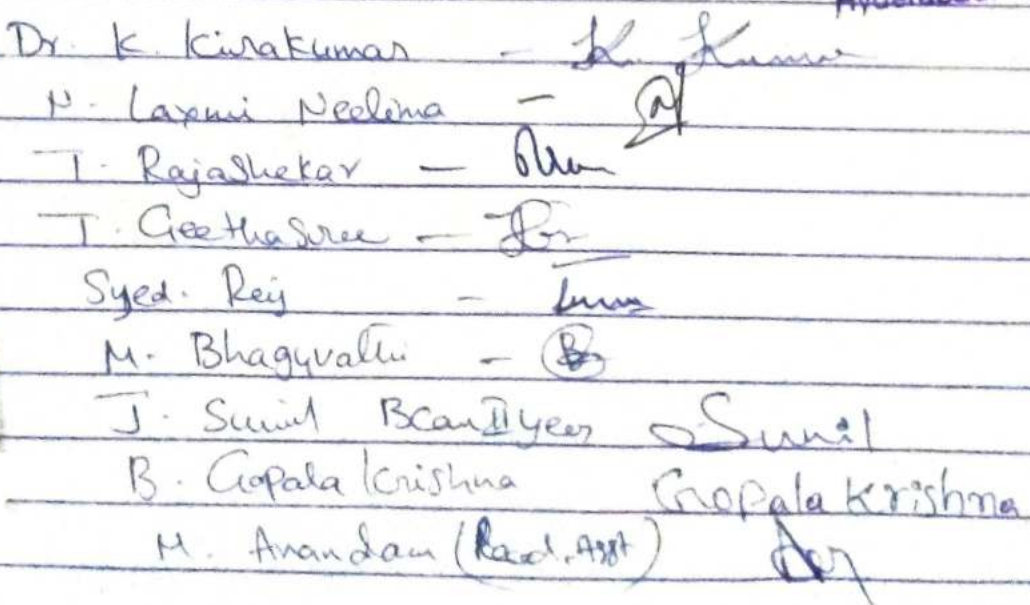 Dr. K. Kirakumar - K. Kumar
N. Laxmi Neelima -
T. Rajashekar -
T. Geethasree -
Syed. Reij -
M. Bhagyvathi - B
J. Sunil BCom II year Sunil
B. Gopala Krishna Gopala Krishna
M. Anandam (Recd. Asst)